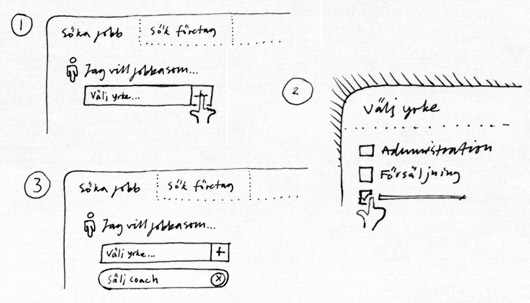 1
Söka jobb
Sök företag
Jag vill jobba som...
Välj yrke...
2
Välj yrke
Administration
Försäljning
3
Söka jobb
Sök företag
Jag vill jobba som...
Välj yrke... +
Sälj coach x